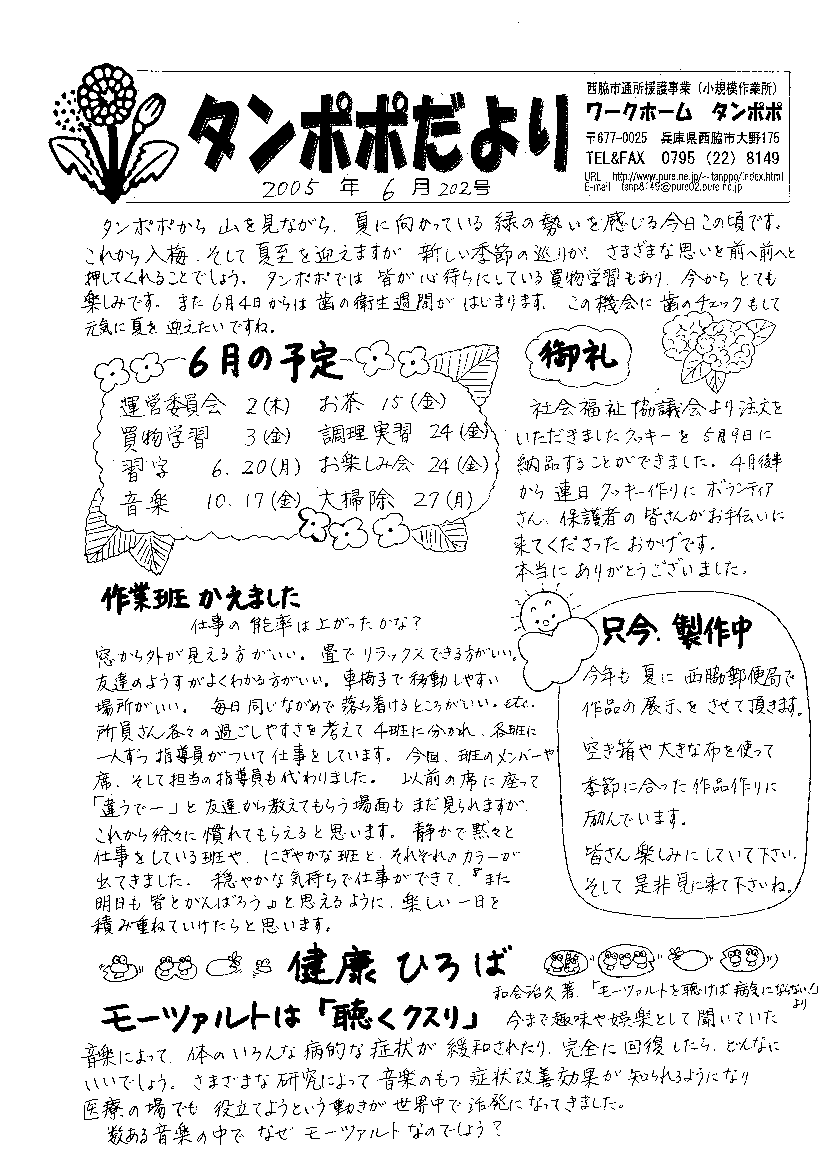 タンポポだより
2005 年 6 月 202号
西脇市通所援護事業（小規模作業所）
ワークホーム タンポポ
〒677-0025 兵庫県西脇市大野175
TEL&FAX 0795（22）8149
URL http://www.pure.ne.jp/~tanppo/index.html
E-mail tanp8149@pure02.pure.ne.jp
タンポポから 山を見ながら、夏に向かっている 緑の勢いを感じる今日この頃です。
これから入梅、そして夏至を迎えますが 新しい季節の巡りが、さまざまな思いを前へ前へと
押してくれることでしょう。 タンポポでは 皆が心待ちにしている買物学習もあり、今から とても
楽しみです。 また 6月4日からは 歯の衛生週間が はじまります。 この機会に 歯のチェックもして
元気に夏を 迎えたいですね。
6月の予定
運営委員会 2(木) お茶 15(金)
買物学習 3(金) 調理実習 24(金)
習字 6. 20(月) お楽しみ会 24(金)
音楽 10. 17(金) 大掃除 27(月)
御礼
社会福祉協議会より注文を
いただきましたクッキーを 5月9日に
納品することができました。 4月後半
から 連日 クッキー作りに ボランティア
さん、保護者の 皆さんが お手伝いに
来てくださった おかげです。
本当に ありがとうございました。
作業班 かえました
仕事の 能率は上がったかな?
窓から外が見える方がいい。 畳で リラックスできる方がいい。
友達のようすがよくわかる方がいい。車椅子で移動しやすい
場所がいい。 毎日同じながめで落ち着けるところがいい。etc.
所員さん各々の過ごしやすさを考えて 4班に分かれ、各班に
一人ずつ指導員がついて仕事をしています。 今回、班のメンバーや
席、そして担当の指導員も代わりました。 以前の席に座って
「違うでー」と友達から教えてもらう場面も まだ見られますが、
これから徐々に慣れてもらえると思います。 静かで黙々と
仕事をしている班や、にぎやかな班と、それぞれのカラーが
出てきました。 穏やかな気持ちで仕事ができて、『また
明日も皆とがんばろう』と思えるように、楽しい一日を
積み重ねていけたらと思います。
只今、製作中
今年も 夏に 西脇郵便局で
作品の展示を させて頂きます。
空き箱や大きな布を使って
季節に合った作品作りに
励んでいます。
皆さん楽しみにしていて下さい。
そして 是非見に来て下さいね。
健康 ひろば
和合治久 著、「モーツァルトを聴けば病気にならない!」
より
モーツァルトは「聴くクスリ」
今まで趣味や娯楽として聞いていた
音楽によって、体の いろんな 病的な 症状が 緩和されたり、完全に 回復したら、どんなに
いいでしょう。 さまざまな 研究によって 音楽のもつ 症状改善効果が 知られるようになり
医療の場でも 役立てようという動きが 世界中で 活発になってきました。
数ある音楽の中で なぜ モーツァルト なのでしょう?